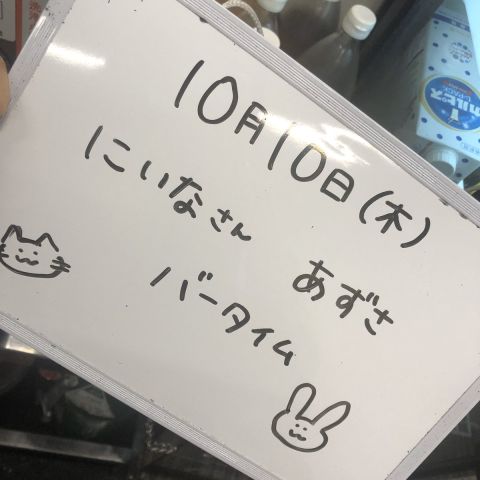 10月10日(木)
にいなさん あずさ
バータイム
カルピス
L-PACK